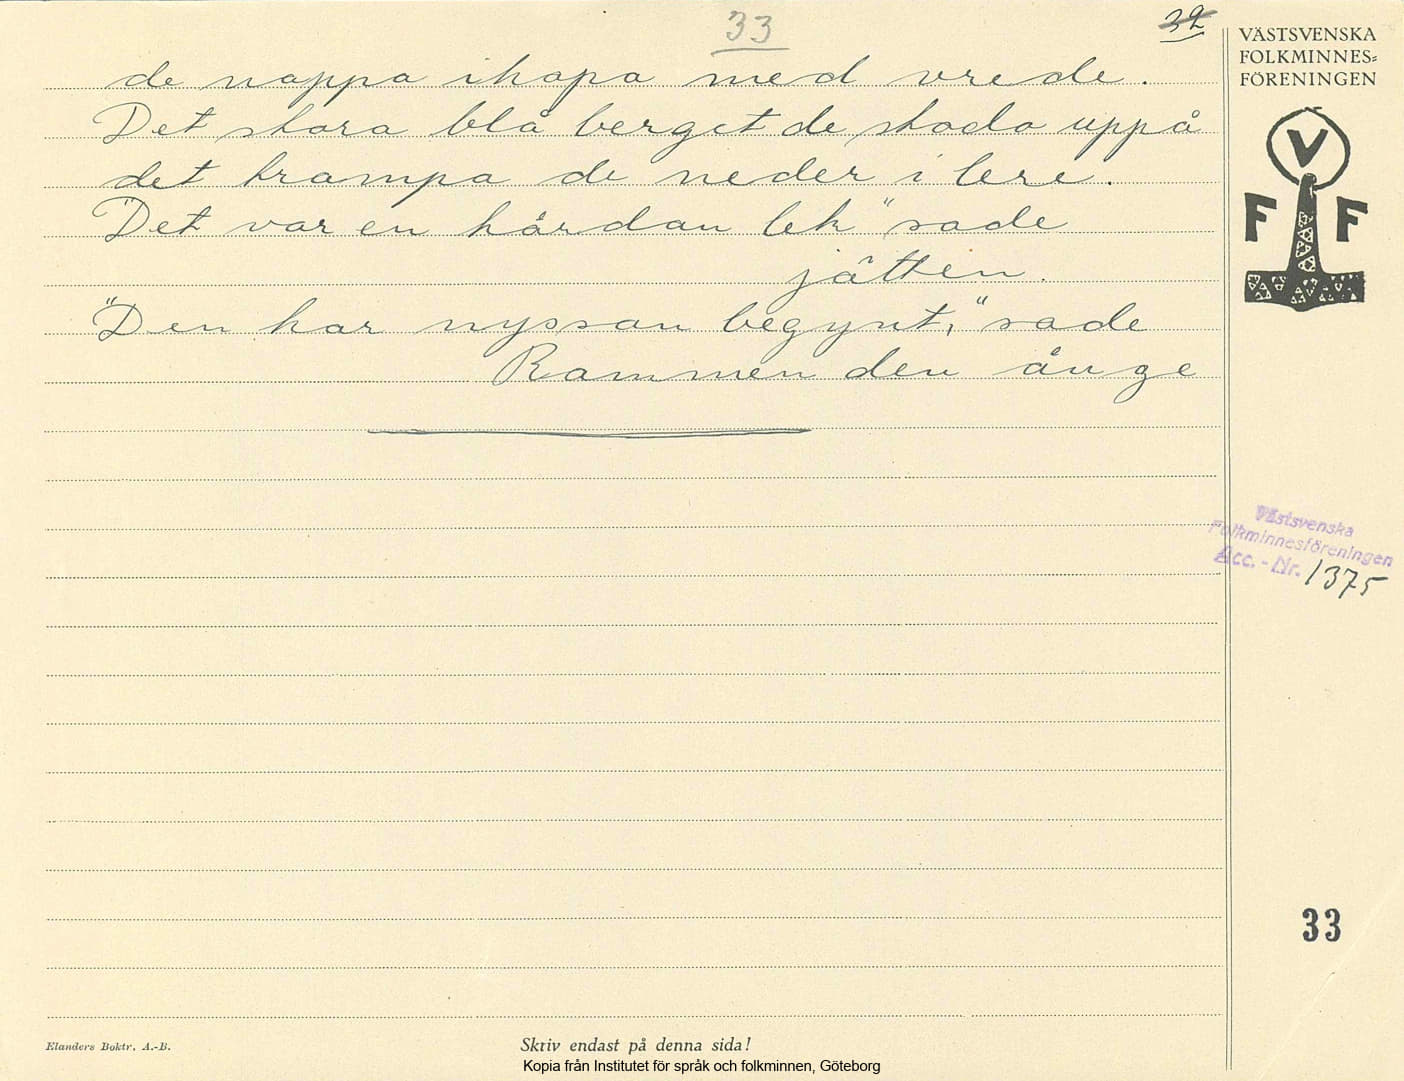 33
32
VÄSTSVENSKA
FOLKMINNES=
FÖRENINGEN
V
F F
de nappa ihopa med vrede.
Det stora blå berget de stodo uppå
det trampa de neder i lere.
"Det var en hårdan lek" sade
jätten.
"Den har nyssan begynt," sade
Rammen den ånge
Västsvenska
Folkminnesföreningen
Acc.-Nr. 1375
33
Elanders Boktr. A.-B.
Skriv endast på denna sida!
Kopia från Institutet för språk och folkminnen, Göteborg